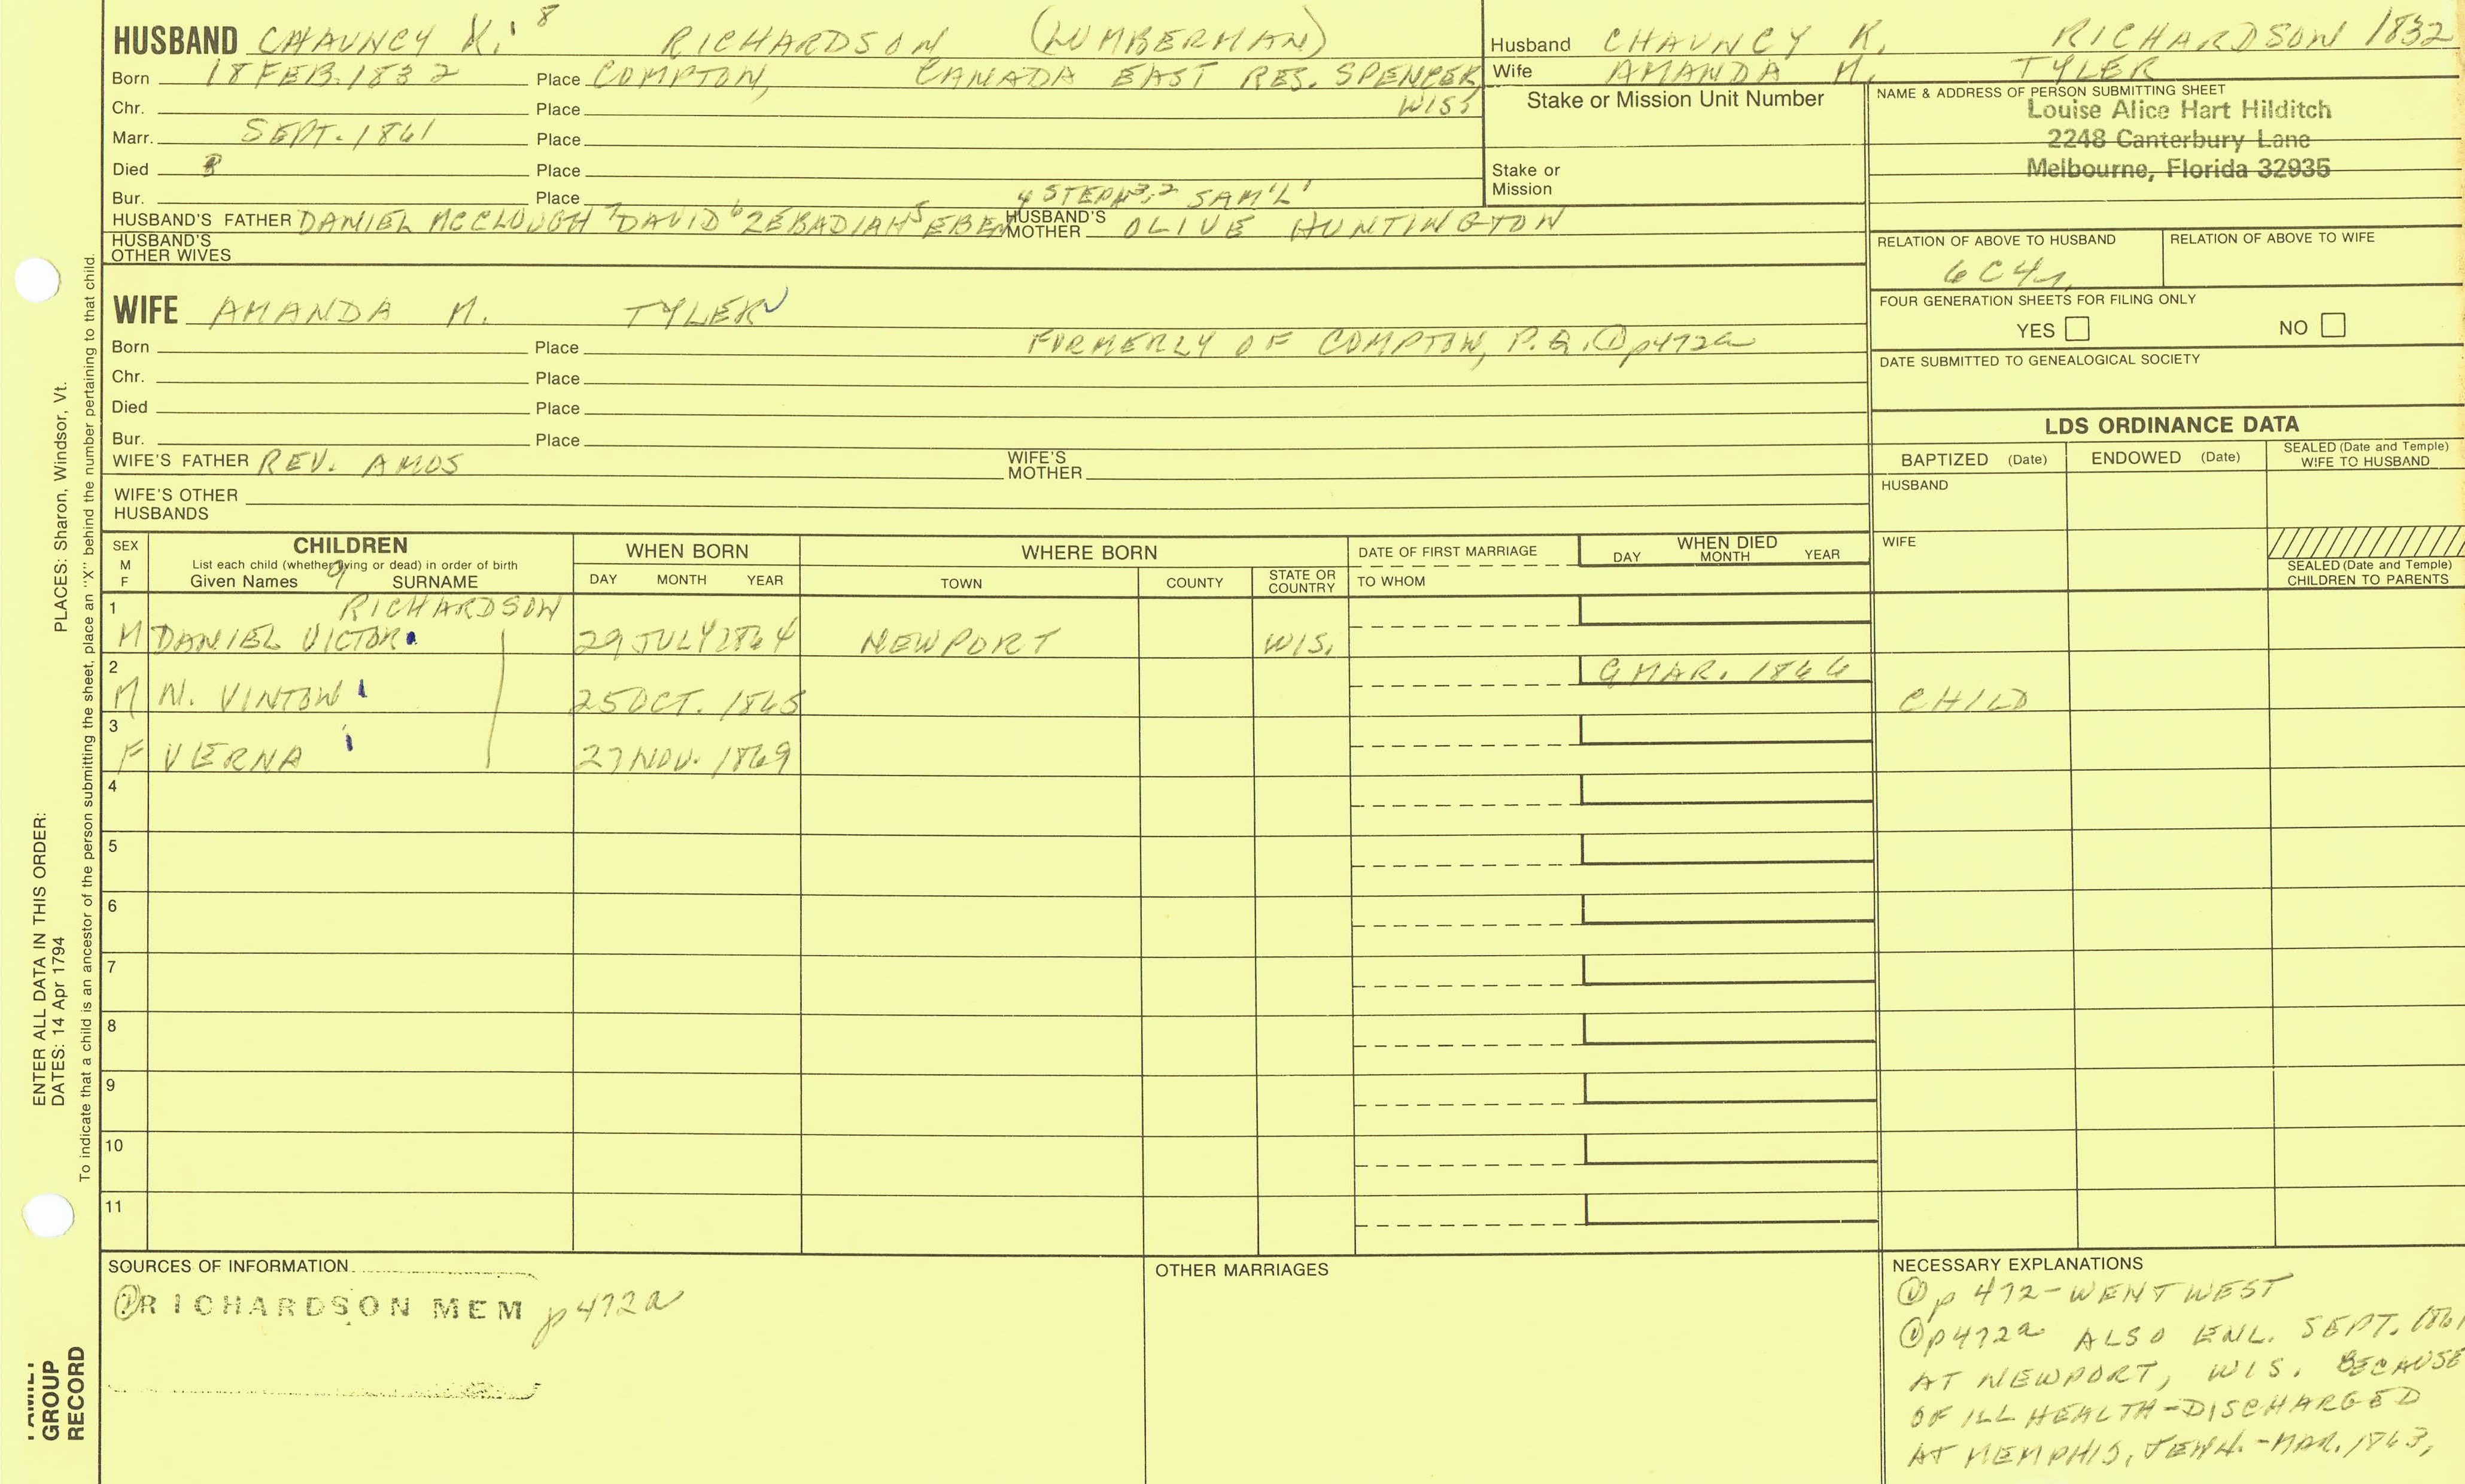 HUSBAND CHAUNCY K. 8 RICHARDSON (LUMBERMAN)
Born 18 FEB. 1832 Place COMPTON, CANADA EAST RES. SPENCER, WISS
Chr. Place
Marr. SEPT. 1861 Place
Died Place
Bur. Place
4 STEPH 3,2 SAM'L 1
HUSBAND'S FATHER DANIEL MCCLOUGH 7 DAVID 6 ZEBADIAH 5 EBEN HUSBAND'S MOTHER OLIVE HUNTINGTON
HUSBAND'S OTHER WIVES
WIFE AMANDA M. TYLER
Born Place FORMERLY OF COMPTON, P.Q. ① p472a
Chr. Place
Died Place
Bur. Place
WIFE'S FATHER REV. AMOS WIFE'S MOTHER
WIFE'S OTHER HUSBANDS
Husband CHAUNCY K. RICHARDSON 1832
Wife AMANDA M. TYLER
Stake or Mission Unit Number
Stake or Mission
NAME & ADDRESS OF PERSON SUBMITTING SHEET
Louise Alice Hart Hilditch
2248 Canterbury Lane
Melbourne, Florida 32935
RELATION OF ABOVE TO HUSBAND RELATION OF ABOVE TO WIFE
6C4r
FOUR GENERATION SHEETS FOR FILING ONLY
YES NO
DATE SUBMITTED TO GENEALOGICAL SOCIETY
LDS ORDINANCE DATA
BAPTIZED (Date) ENDOWED (Date) SEALED (Date and Temple) WIFE TO HUSBAND
HUSBAND
WIFE
SEALED (Date and Temple) CHILDREN TO PARENTS
SEX M F
CHILDREN
List each child (whether living or dead) in order of birth
Given Names 9 SURNAME
WHEN BORN
DAY MONTH YEAR
WHERE BORN
TOWN COUNTY STATE OR COUNTRY
DATE OF FIRST MARRIAGE
TO WHOM
WHEN DIED
DAY MONTH YEAR
1 RICHARDSON
M DANIEL VICTOR 29 JULY 1864 NEWPORT WIS.
2 9 MAR. 1866
M N. VINTON 25 OCT. 1865 CHILD
3
F VERNA 27 NOV. 1869
4
5
6
7
8
9
10
11
SOURCES OF INFORMATION
① RICHARDSON MEM p472a
OTHER MARRIAGES
NECESSARY EXPLANATIONS
① p 472-WENT WEST
① p472a ALSO ENL. SEPT. 1861
AT NEWPORT, WIS. BECAUSE
OF ILL HEALTH-DISCHARGED
AT MEMPHIS, TENN.-MAR. 1863,
ENTER ALL DATA IN THIS ORDER:
DATES: 14 Apr 1794 PLACES: Sharon, Windsor, Vt.
To indicate that a child is an ancestor of the person submitting the sheet, place an "X" behind the number pertaining to that child.
GROUP
RECORD